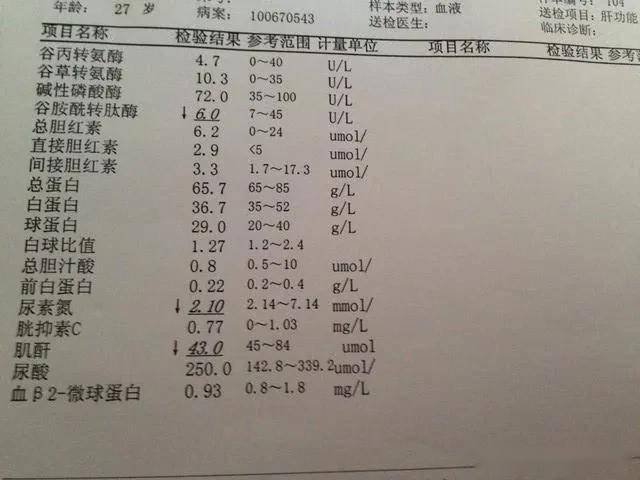 年龄: 27 岁 病案: 100670543 样本类型: 血液 送检项目: 肝功能
送检医生: 临床诊断:
项目名称 检验结果 参考范围 计量单位 项目名称 检验结果
谷丙转氨酶 4.7 0～40 U/L
谷草转氨酶 10.3 0～35 U/L
碱性磷酸酶 72.0 35～100 U/L
谷胺酰转肽酶 ↓ 6.0 7～45 U/L
总胆红素 6.2 0～24 umol/
直接胆红素 2.9 <5 umol/
间接胆红素 3.3 1.7～17.3 umol/
总蛋白 65.7 65～85 g/L
白蛋白 36.7 35～52 g/L
球蛋白 29.0 20～40 g/L
白球比值 1.27 1.2～2.4
总胆汁酸 0.8 0.5～10 umol/
前白蛋白 0.22 0.2～0.4 g/L
尿素氮 ↓ 2.10 2.14～7.14 mmol/
胱抑素C 0.77 0～1.03 mg/L
肌酐 ↓ 43.0 45～84 umol
尿酸 250.0 142.8～339.2umol/
血β2-微球蛋白 0.93 0.8～1.8 mg/L